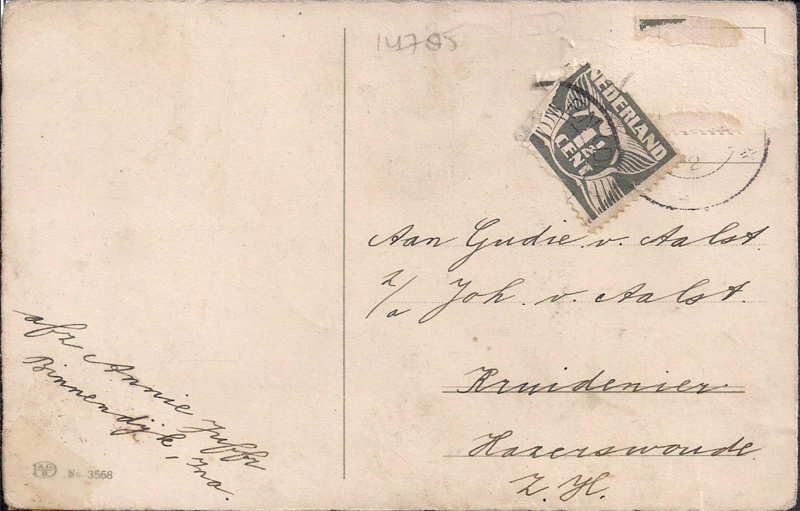 14705
NEDERLAND
CENT
Aan Gudie v. Aalst.
z/a Joh. v. Aalst.
Kruidenier
Hazerswoude
Z. H.
afz Annie Juffr
Binnendijk, Ina.
No. 3568